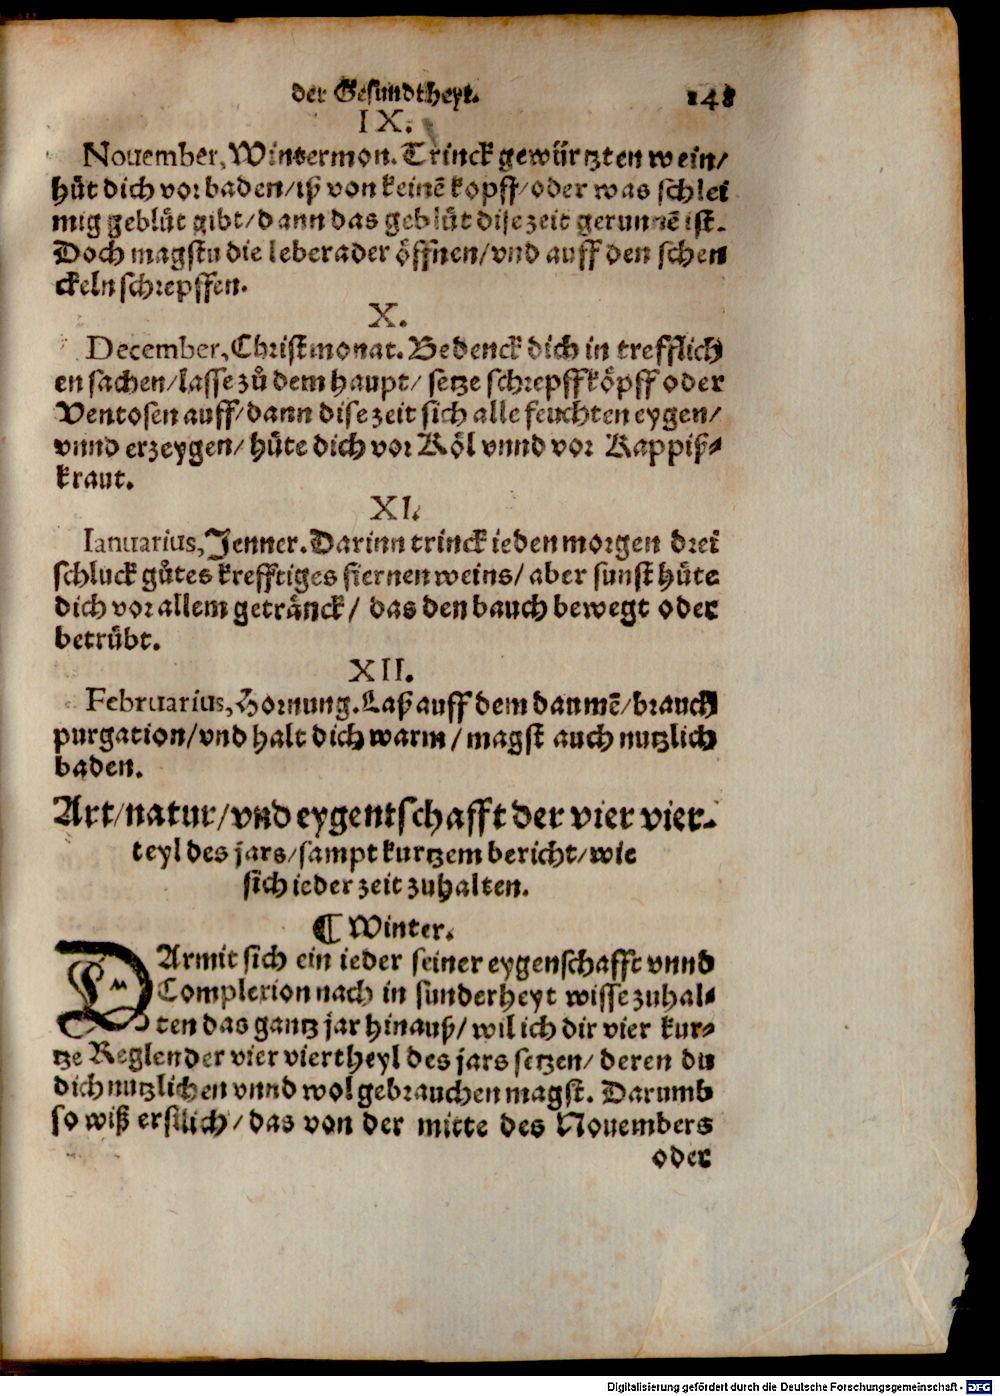 der Gesundtheyt. 148
IX.
Nouember, Wintermon. Trinck gewürtzten wein/
hüt dich vor baden/iß von keinē kopff/oder was schlei
mig geblüt gibt/dann das geblüt dise zeit gerunnē ist.
Doch magstu die leberader öffnen/vnd auff den schen
ckeln schrepffen.
X.
December, Christmonat. Bedenck dich in trefflich
en sachen/lasse zů dem haupt/ setze schrepffköpff oder
Ventosen auff/dann dise zeit sich alle feuchten eygen/
vnnd erzeygen/ hüte dich vor Köl vnnd vor Kappiß⸗
kraut.
XI.
Ianuarius, Jenner. Darinn trinck ieden morgen drei
schluck gůtes krefftiges fiernen weins/ aber sunst hüte
dich vor allem getränck/ das den bauch bewegt oder
betrübt.
XII.
Februarius, Hornung. Laß auff dem daumē/brauch
purgation/vnd halt dich warm/ magst auch nutzlich
baden.
Art/natur/vnd eygentschafft der vier vier⸗
teyl des jars/sampt kurtzem bericht/wie
sich ieder zeit zuhalten.
¶ Winter.
DArmit sich ein ieder seiner eygenschafft vnnd
Complexion nach in sunderheyt wisse zuhal⸗
ten das gantz jar hinauß/ wil ich dir vier kur⸗
tze Reglen der vier viertheyl des jars setzen/ deren du
dich nutzlichen vnnd wol gebrauchen magst. Darumb
so wiß erstlich/das von der mitte des Nouembers
oder
Digitalisierung gefördert durch die Deutsche Forschungsgemeinschaft - DFG